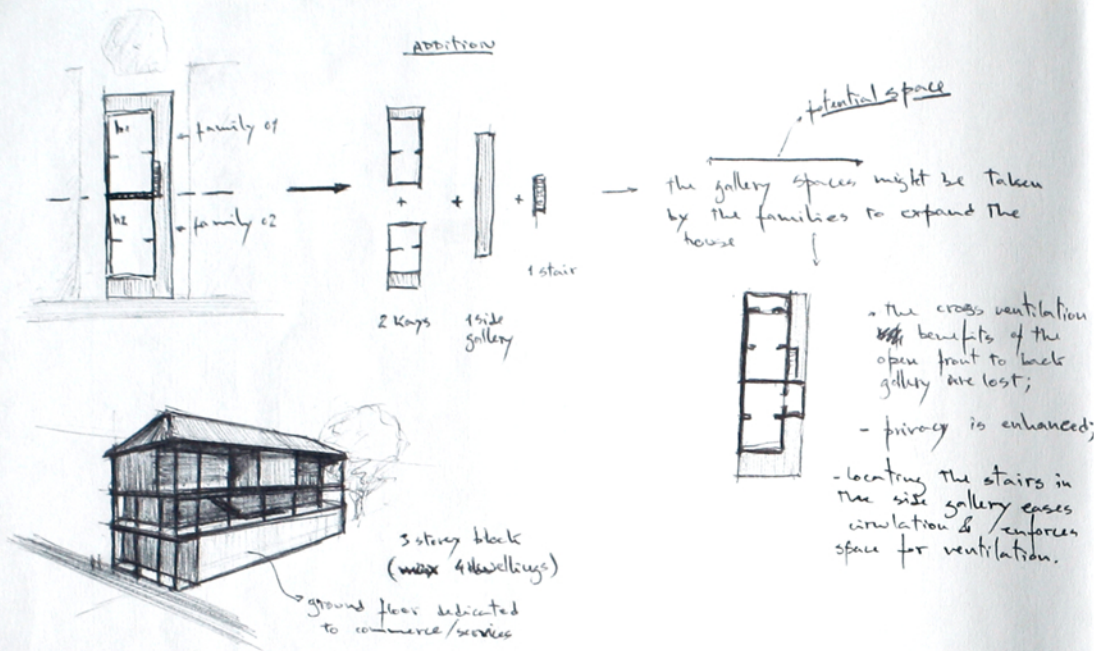 ADDITION
h1
family 01
h2
family 02
+
+
+
2 Kays
1 side
gallery
1 stair
potential space
the gallery spaces might be taken
by the families to expand the
house
- the cross ventilation
benefits of the
open front to back
gallery are lost;
- privacy is enhanced;
- locating the stairs in
the side gallery eases
circulation & enforces
space for ventilation.
3 storey block
(max 4 dwellings)
ground floor dedicated
to commerce/services